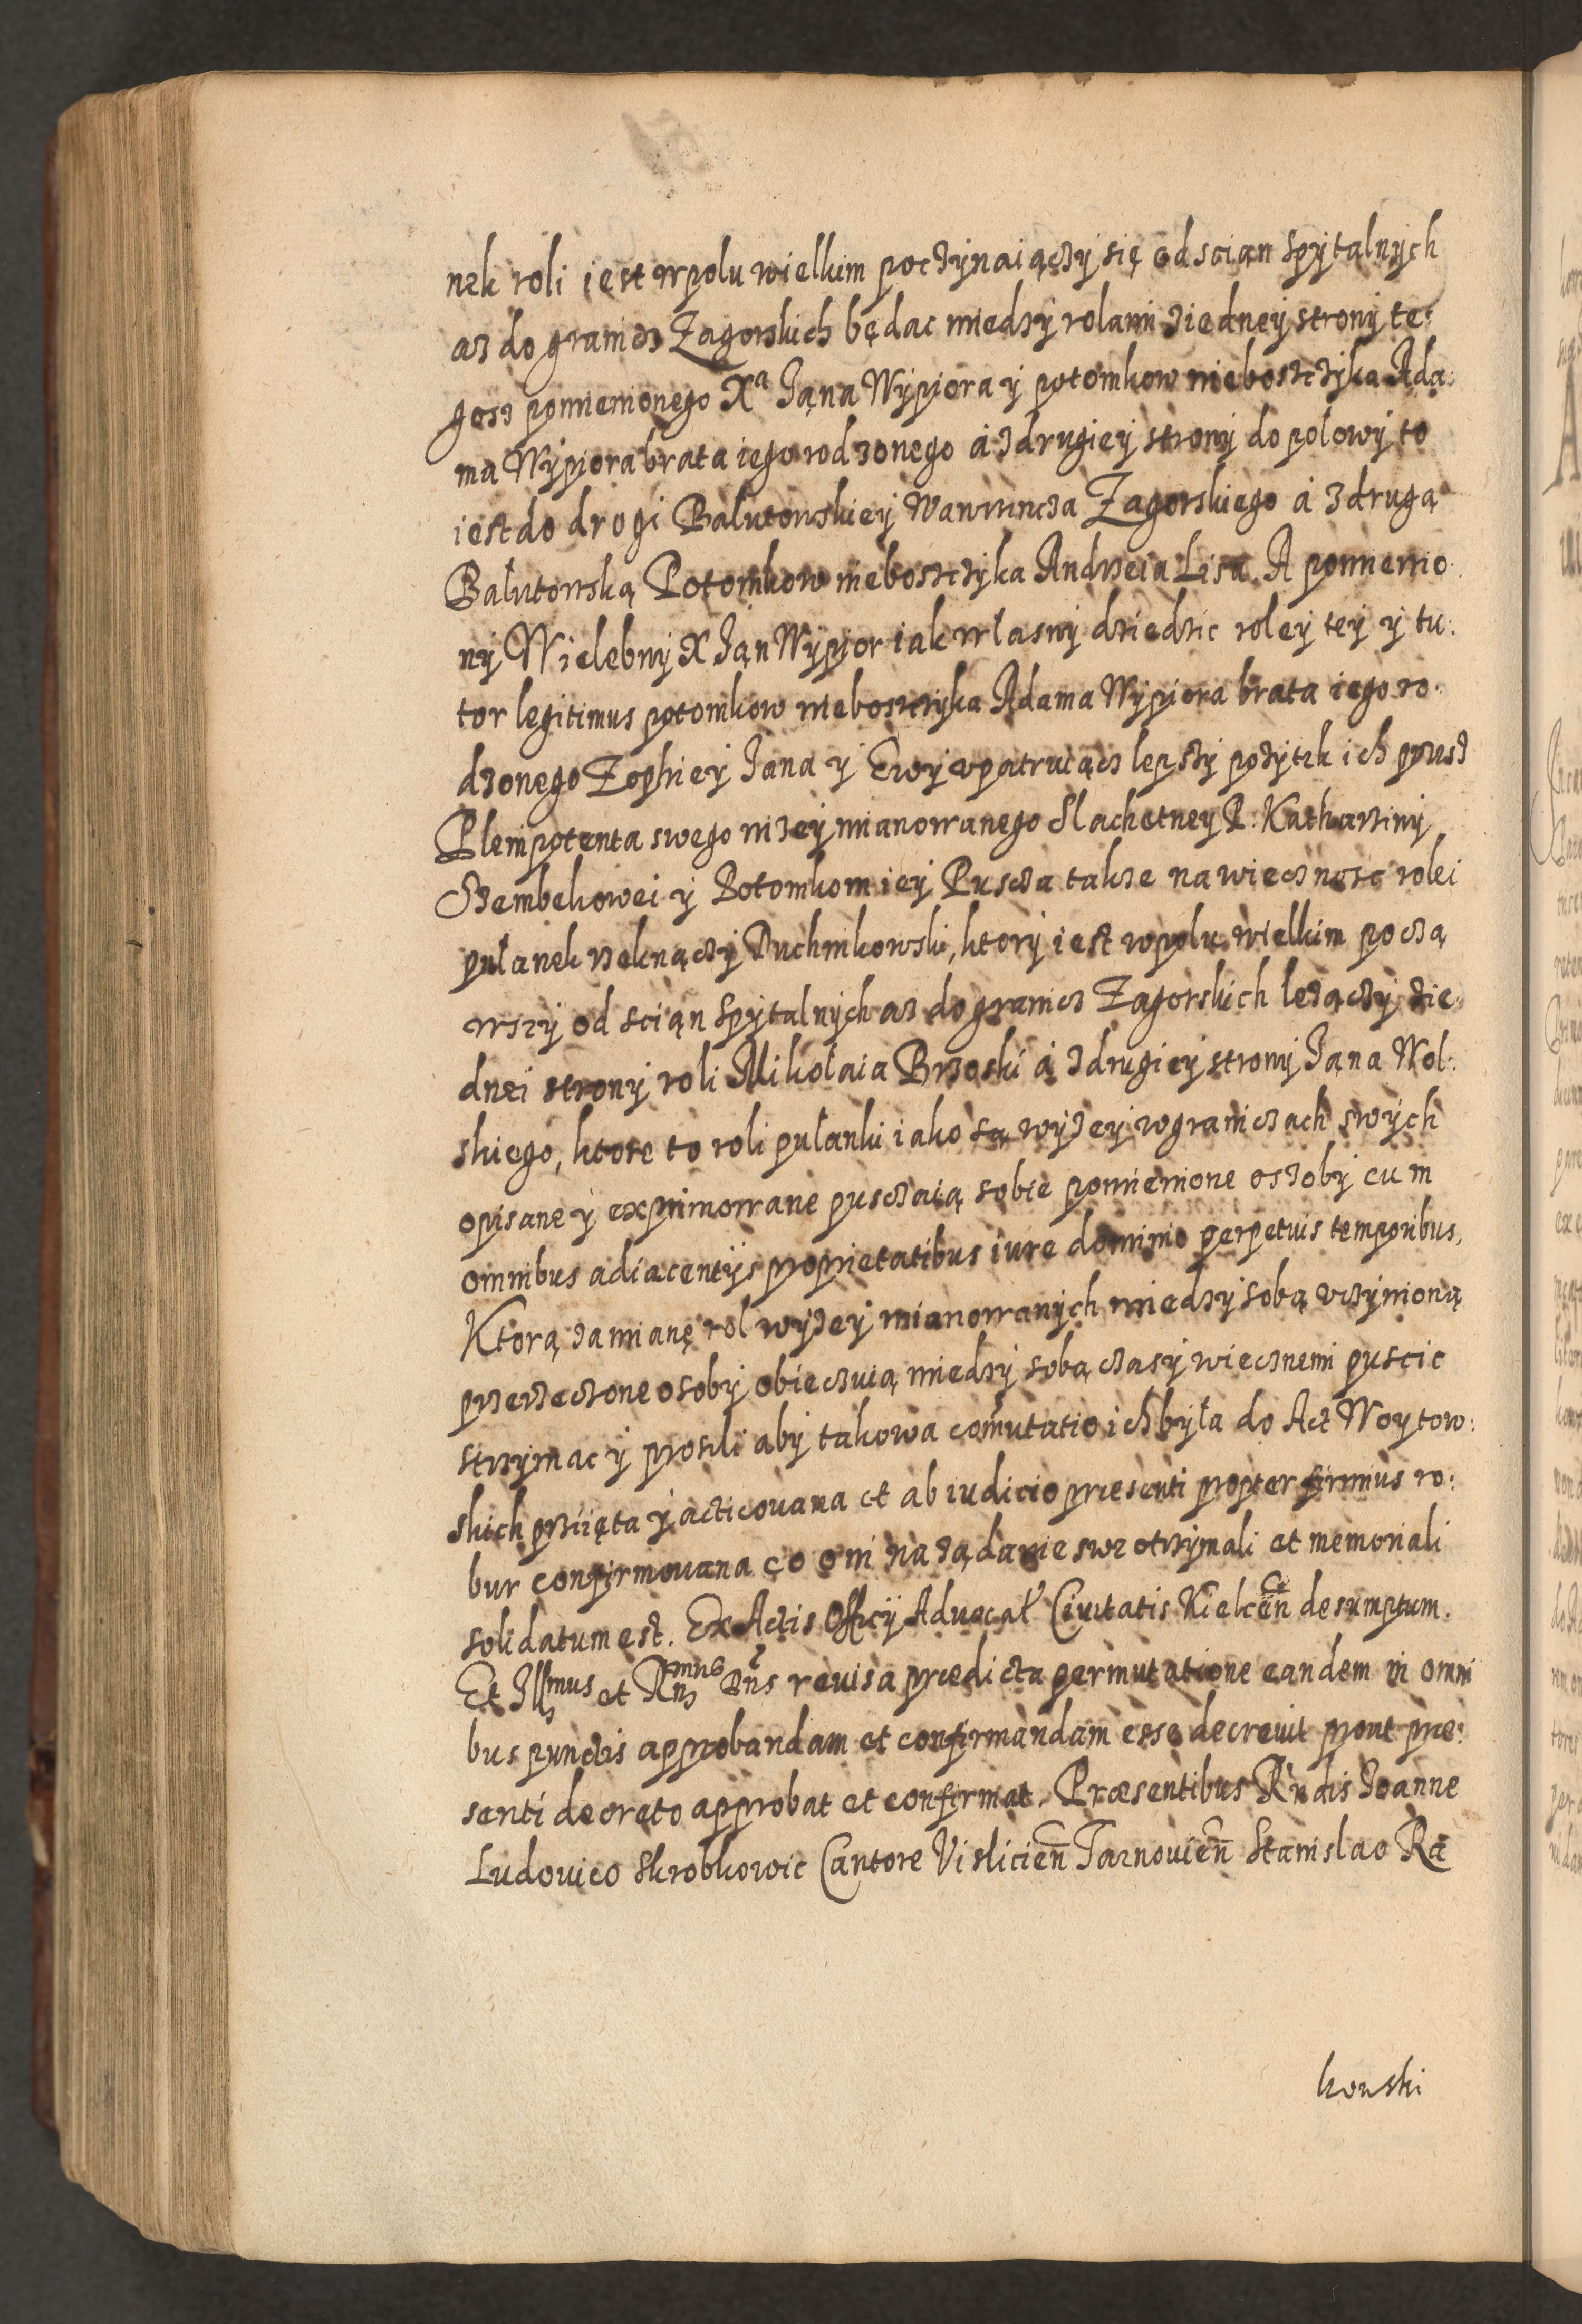 nek roli iest w polu wielkim poczynaiączy się od scian Spytalnych
az do granicz Zagorskich będac miedzy rolami ziedney strony te:
gosz pomienionego Xa Jana Wypiora y potomkow nieboszczyka Ada:
ma Wypiora brata iego rodzonego á z drugiey strony do połowy to
iest do drogi Bałutowskiey Wawrzincza Zagorskiego á z drugą
Bałutowską Potomkow nieboszczyka Andrzeia Lisa. A pomienio
ny Wielebny X Jan Wypior iak własny dziedzic roley tey y tu:
tor legitimus potomkow nieboszczyka Adama Wypiora brata iego ro
dzonego Zophiey Jana y Ewy vpatruiącz lepszy pozytek ich przesz
Plenipotenta swego nizey mianowanego Slachetney P: Katharziny
Szembekowei y Potomkom iey Puscza takze na wiecznosc rolei
pułanek rzeknączy Duchnikowski, ktory iest w polu wielkim pocza
wszy od scian Spytalnych az do granicz Zagorskich lezączy zie
dnei strony roli Mikołaia Brzoski á z drugiey strony Jana Wol:
skiego, ktore to roli pułanki iako są wyzey w graniczach swych
opisane y exprimowane pusczaią sobie pomienione osoby cum
omnibus adiacentijs proprietatibus iure dominio perpetuis temporibus,
Ktorą zamianę rol wyzey mianowanych miedzy sobą vczynioną
przerzeczone osoby obieczuią miedzy sobą czasy wiecznemi puscic
strzymac y prosili aby takowa com̃utatio ich była do Act Woytow:
skich prziięta y acticouana et ab iudicio præsenti propter firmius ro:
bur confirmouana co oni na ządanie swe otrzymali et memoriali
solidatum est. Ex Actis Officij Aduocał Ciuitatis Kielceñ desumptum.
Et Illmus et Rmus Dñs reuisa prædicta permutatione eandem in omni
bus punctis approbandam et confirmandam esse decreuit prout præ:
senti decreto approbat et confirmat. Præsentibus Rndis Joanne
Ludouico Skrobkowic Cantore Vislicieñ Tarnouieñ Stanislao Ra
kowski